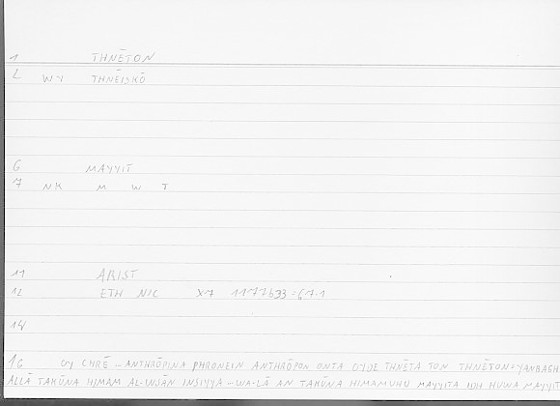 1 THNĒTON
2 WY THNĒISKŌ
6 MAYYIT
7 NK M W T
11 ARIST
12 ETH NIC X7 1177b33=561.1
14
16 OY CHRĒ - ANTHRŌPINA PHRONEIN ANTHRŌPON ONTA OYDE THNĒTA TON THNĒTON - YANBAGH
ALLĀ TAKŪNA HIMAM AL-INSĀN INSIYYA - WA-LĀ AN TAKŪNA HIMAMUHU MAYYITA IDH HUWA MAYYIT